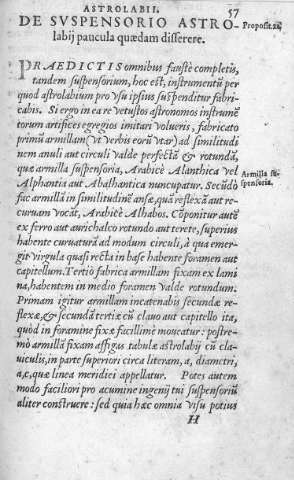 ASTROLABII. 57
DE SVSPENSORIO ASTRO-
labij paucula quædam differere.
Proposit. 22.
PRAEDICTIS omnibus fauste completis,
tandem suspensorium, hoc est, instrumentũ per
quod astrolabium pro vsu ipsius suspenditur fabri-
cabis. Si ergo in ea re vetustos astronomos instrumẽ
torum artifices egregios imitari volueris, fabricato
primũ armillam (vt verbis eorũ vtar) ad similitudi
nem anuli aut circuli valde perfectã & rotundã,
quæ armilla suspensoria, Arabicè Alanthica vel
Alphantia aut Abalhantica nuncupatur. Secũdò
fac armillã in similitudinẽ ansæ, quã reflexã aut re-
curuam vocãt, Arabicè Alhabos. Cõponitur autẽ
ex ferro aut aurichalco rotundo aut terete, superius
habente curuaturã ad modum circuli, à qua emer-
git virgula quasi recta in base habente foramen aut
capitellum. Tertiò fabrica armillam fixam ex lami
na, habentem in medio foramen valde rotundum.
Primam igitur armillam incatenabis secundæ re-
flexæ, & secundã tertiæ cũ clauo aut capitello ita,
quòd in foramine fixæ facillimè moueatur: postre-
mò armillã fixam affigas tabulæ astrolabij cũ cla-
uiculis, in parte superiori circa literam, a, diametri,
a,c, quæ linea meridiei appellatur. Potes autem
modo faciliori pro acumine ingenij tui suspensoriũ
aliter construere: sed quia hæc omnia visu potius
H
Armilla su-
spensoria.